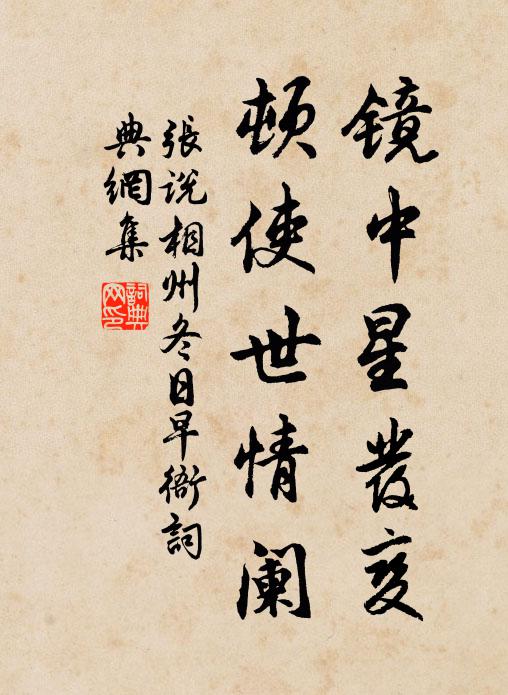 镜中星发变
顿使世情阑
张说相州冬日早衙词
典网集
词典网印